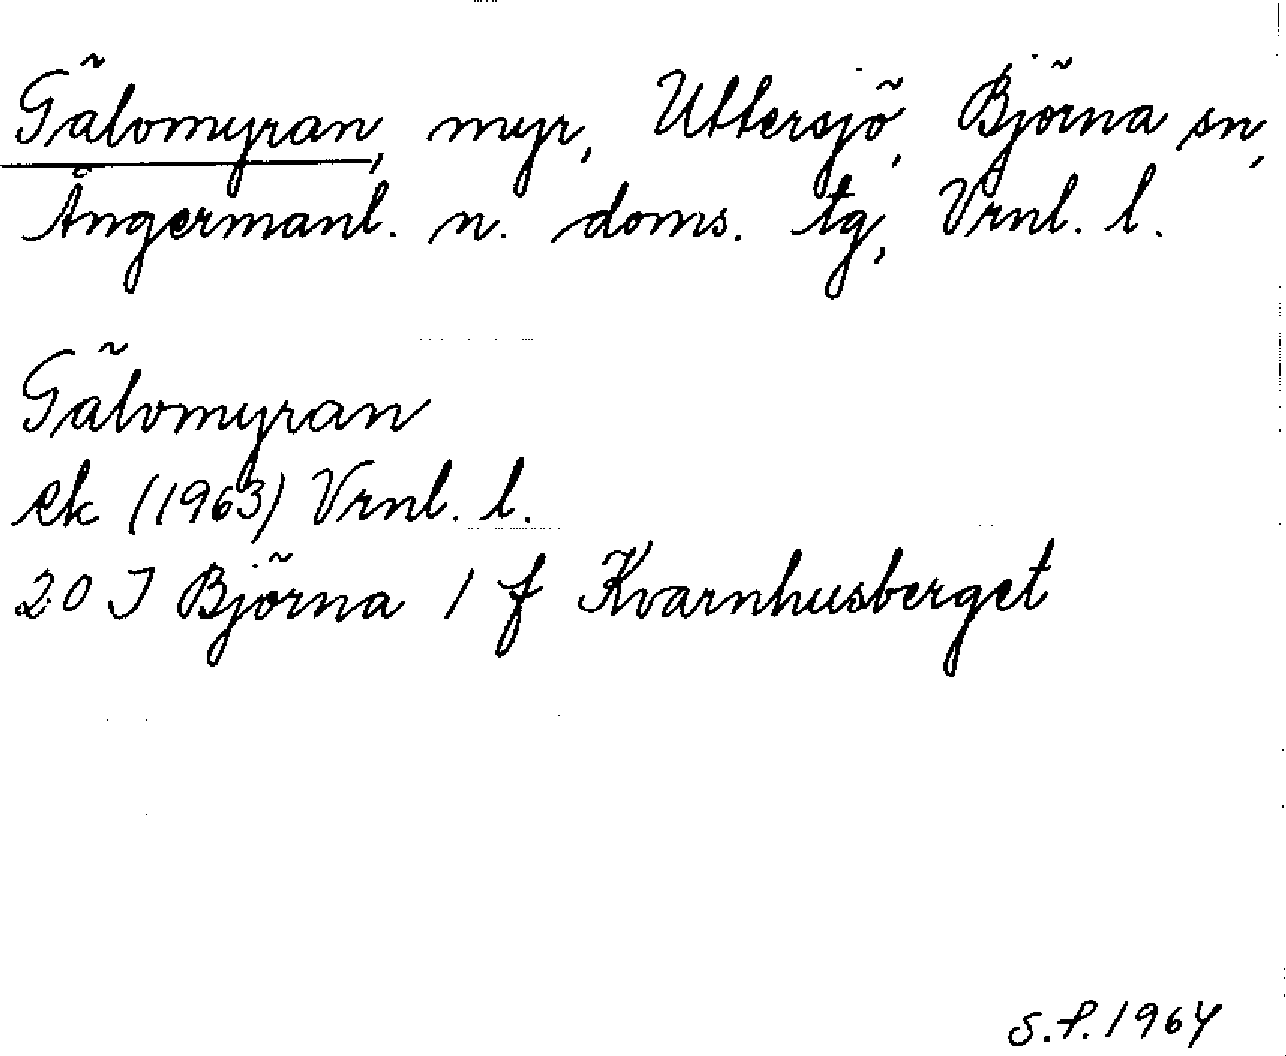 Gälomyran, myr, Uttersjö, Björna sn,
Ångermanl. n. doms. tg, Vrnl. l.
Gälomyran
ek (1963) Vrnl. l.
20 I Björna 1 f Kvarnhusberget
S.F. 1964